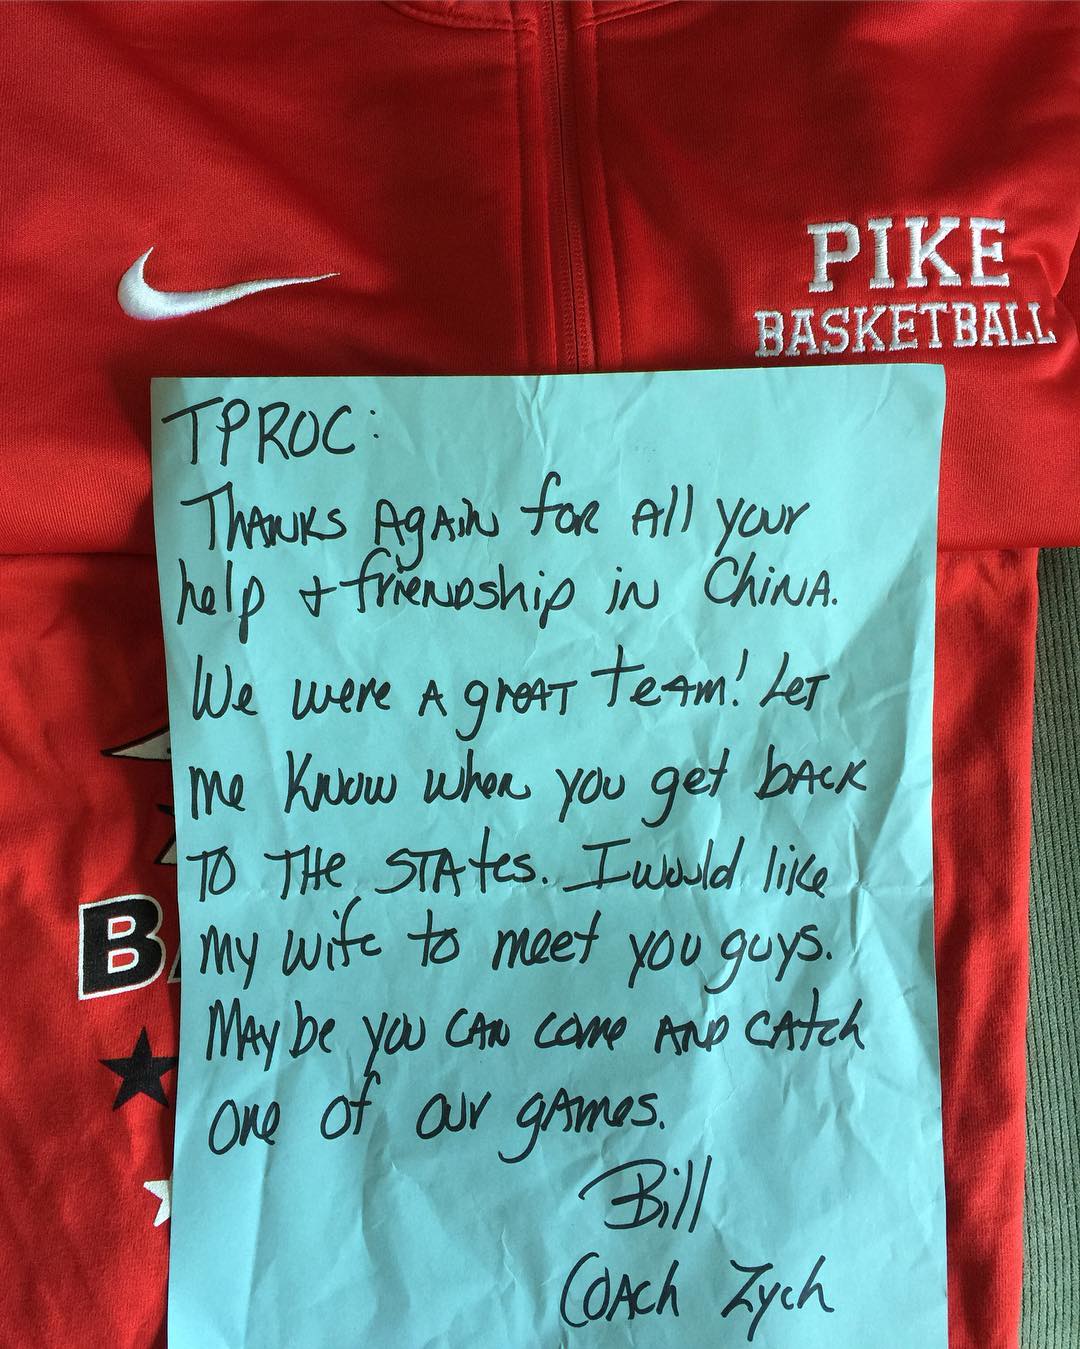 PIKE
BASKETBALL
TPROC:
THANKS AgAiN for All your
help + friendship in China.
We were A great team! Let
me know when you get back
to the States. I would like
my wife to meet you guys.
Maybe you can come and catch
one of our games.
Bill
Coach Zych